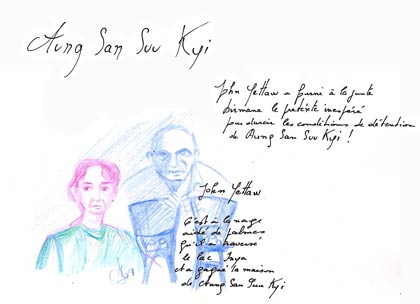 Aung San Suu Kyi
John Yettaw a fourni à la junte
birmane le prétexte inespéré
pour durcir les conditions de détention
de Aung San Suu Kyi !
John Yettaw
C'est à la nage
aidé de palmes
qu'il a traversé
le lac Inya
et a gagné la maison
de Aung San Suu Kyi